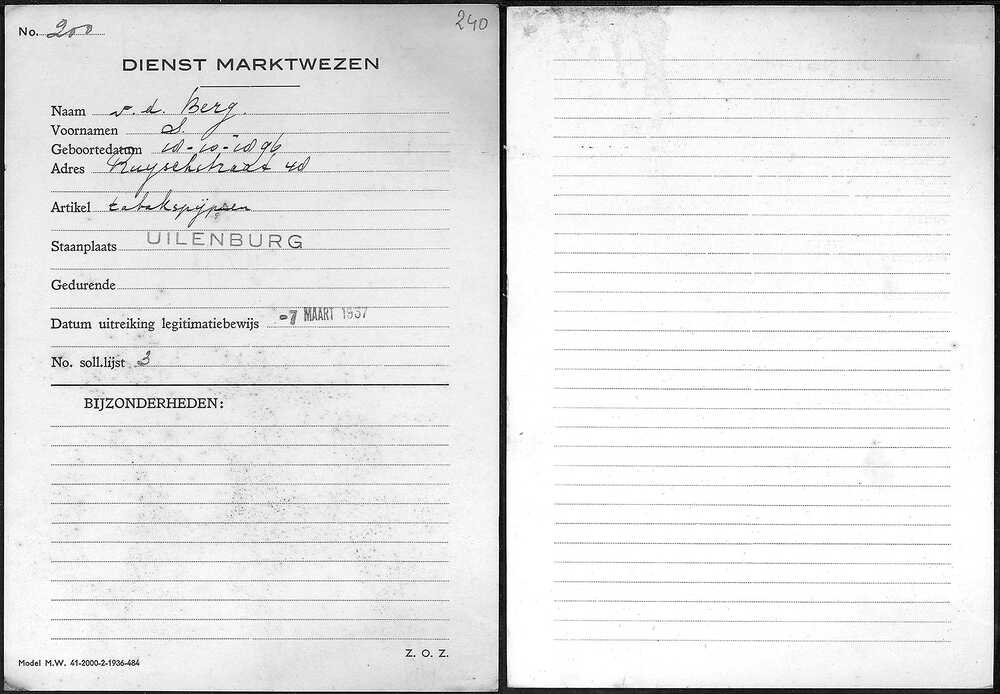 240
No. 200
DIENST MARKTWEZEN
Naam v. d. Berg.
Voornamen S.
Geboortedatum 18-10-1896
Adres Ruyschstraat 48
Artikel tabakspijpen
Staanplaats UILENBURG
Gedurende
Datum uitreiking legitimatiebewijs -7 MAART 1937
No. soll.lijst 3
BIJZONDERHEDEN:
Model M.W. 41-2000-2-1936-484
Z. O. Z.